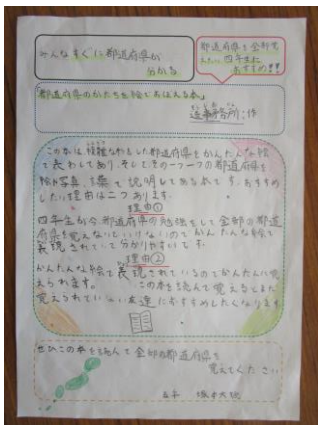 みんなすぐに都道府県が
分かる
都道府県を全部覚
えたい四年生に
おすすめ!!!
「都道府県のかたちを絵でおぼえる本」
造事務所:作
この本は複雑なかたちをした都道府県をかんたんな絵
で表わしてあり、そしてその一つ一つの都道府県を
絵や写真、漢字で説明してある本です。おすすめ
したい理由は二つあります。
理由①
四年生が今、都道府県の勉強をして全部の都道
府県を覚えないといけないので かんたんな絵で
表現されていて分かりやすいです。
理由②
かんたんな絵で表現されているのでかんたんに覚
えられます。 この本を読んで覚えるとまだ
覚えられていない友達におすすめしたくなります
ぜひこの本を読んで全部の都道府県を
覚えてください